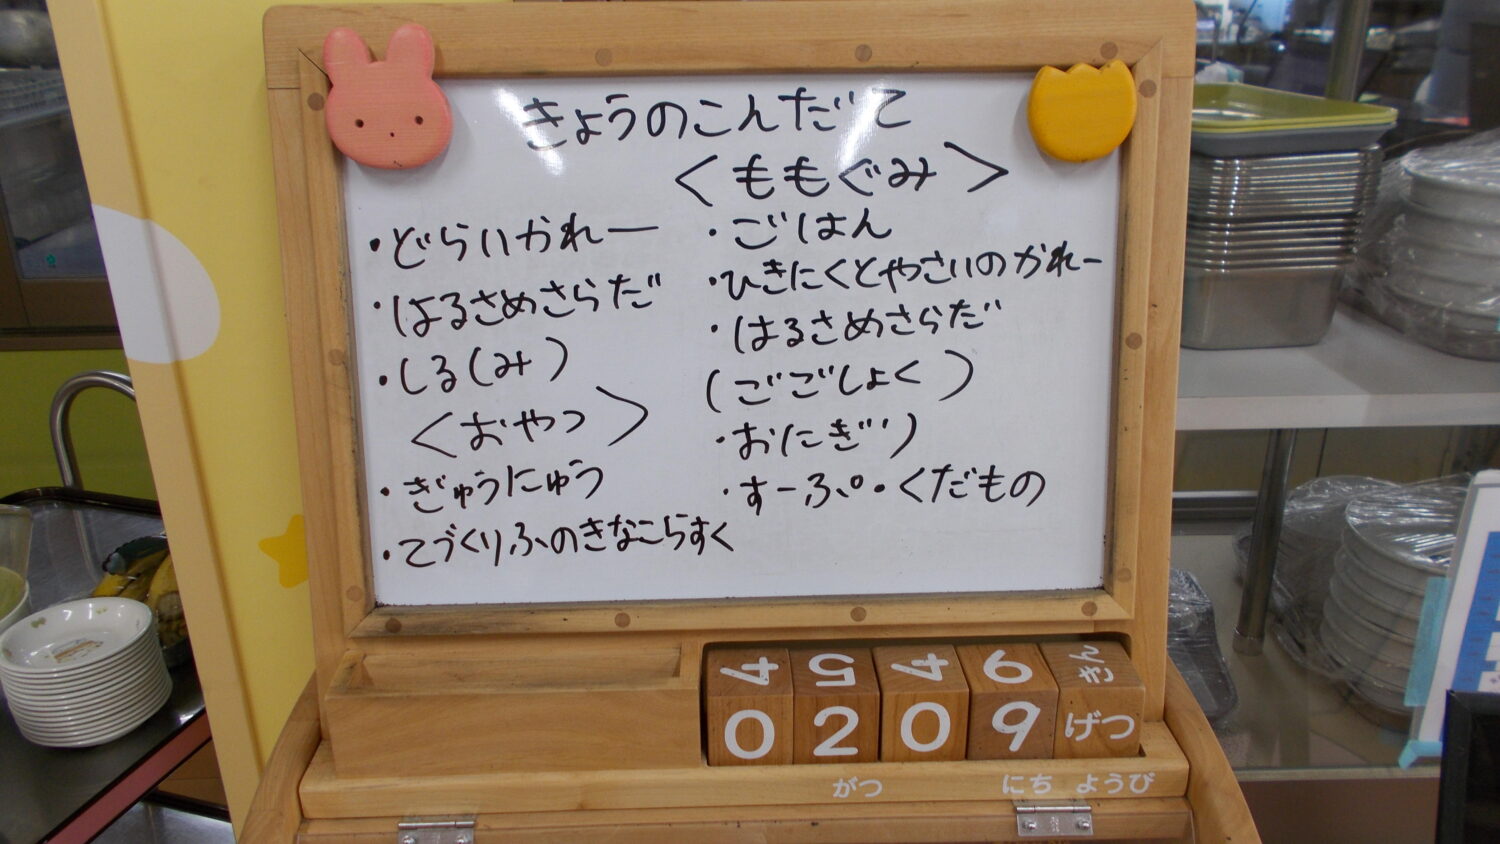 きょうのこんだて
・どらいかれー
・はるさめさらだ
・しる(みそ)
＜おやつ＞
・ぎゅうにゅう
・てづくりふのきなこらすく
＜ももぐみ＞
・ごはん
・ひきにくとやさいのかれー
・はるさめさらだ
(ごごしょく)
・おにぎり
・すーぷ・くだもの
4 5 4 6 きん
0 2 0 9 げつ
がつ にち ようび